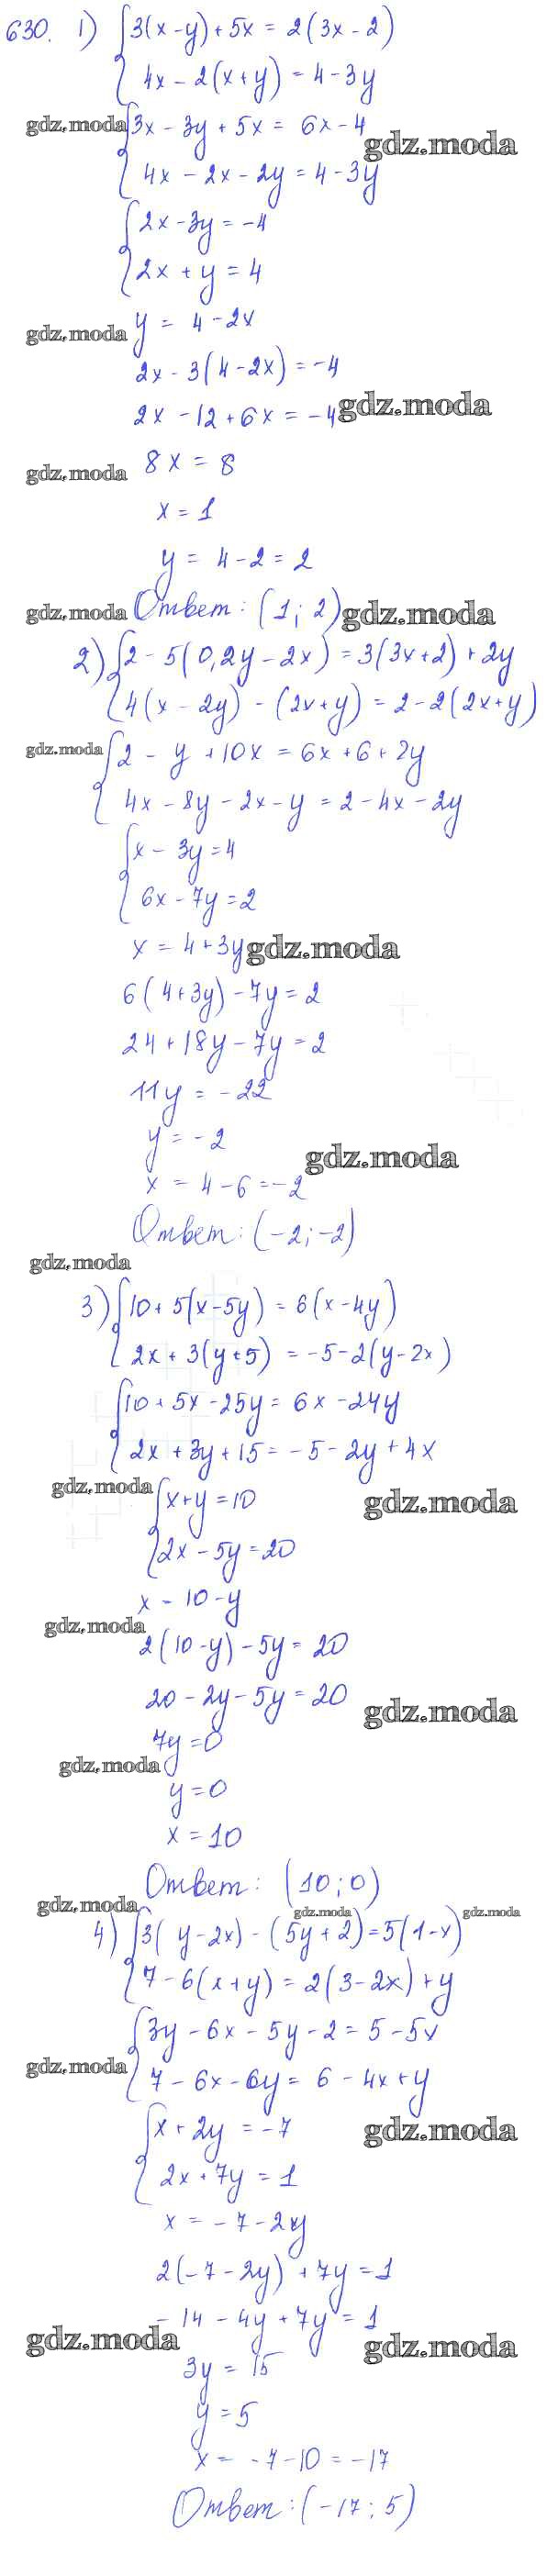 630. 1) 3(x-y)+5x = 2(3x-2)
4x-2(x+y) = 4-3y
gdz.moda 3x-3y+5x = 6x-4
gdz.moda
4x-2x-2y = 4-3y
2x-3y = -4
2x+y = 4
gdz.moda y = 4-2x
2x-3(4-2x) = -4
2x-12+6x = -4 gdz.moda
gdz.moda 8x = 8
x = 1
y = 4-2 = 2
gdz.moda Ответ: (1; 2) gdz.moda
2) 2-5(0,2y-2x) = 3(3x+2)+2y
4(x-2y)-(2x+y) = 2-2(2x+y)
gdz.moda 2-y+10x = 6x+6+2y
4x-8y-2x-y = 2-4x-2y
x-3y = 4
6x-7y = 2
x = 4+3y gdz.moda
6(4+3y)-7y = 2
24+18y-7y = 2
11y = -22
y = -2
gdz.moda
x = 4-6 = -2
Ответ: (-2; -2)
gdz.moda
3) 10+5(x-5y) = 6(x-4y)
2x+3(y+5) = -5-2(y-2x)
10+5x-25y = 6x-24y
2x+3y+15 = -5-2y+4x
gdz.moda x+y = 10 gdz.moda
2x-5y = 20
x - 10-y
gdz.moda
2(10-y)-5y = 20
20-2y-5y = 20
gdz.moda
7y = 0
gdz.moda
y = 0
x = 10
Ответ: (10; 0)
gdz.moda gdz.moda gdz.moda
4) 3(y-2x)-(5y+2) = 5(1-x)
7-6(x+y) = 2(3-2x)+y
3y-6x-5y-2 = 5-5x
gdz.moda 7-6x-6y = 6-4x+y
x+2y = -7 gdz.moda
2x+7y = 1
x = -7-2y
2(-7-2y)+7y = 1
-14-4y+7y = 1
gdz.moda gdz.moda
3y = 15
y = 5
x = -7-10 = -17
Ответ: (-17; 5)